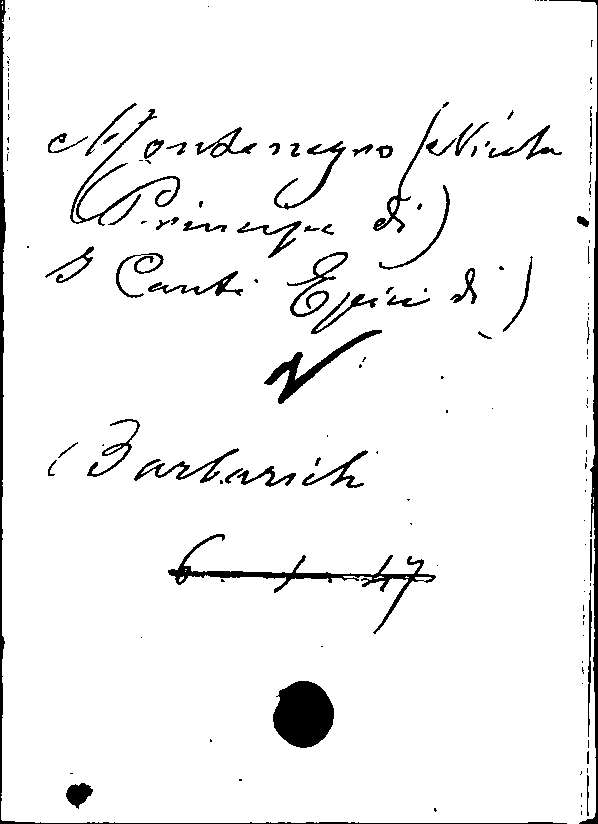 Montenegro (Nicola
Principe di)
I Canti Epici di)
V
Barbarich
6. 1. 47